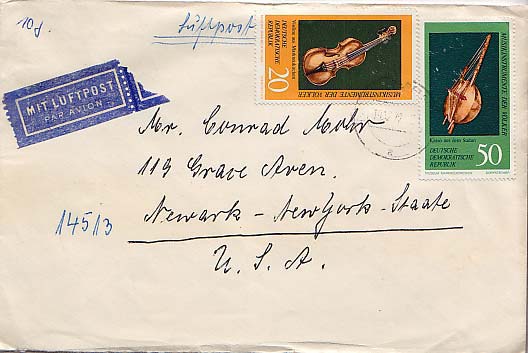 10g
Luftpost
MIT LUFTPOST
PAR AVION
Violine aus Markneukirchen
DEUTSCHE
DEMOKRATISCHE
REPUBLIK
20
MUSIKINSTRUMENTE DER VÖLKER
MUSIKINSTRUMENTE DER VÖLKER
Kasso aus dem Sudan
DEUTSCHE
DEMOKRATISCHE
REPUBLIK
50
Mr. Conrad Mohr
119 Grave Aven.
14513
Newark - NewYork - Staate
U. S. A.